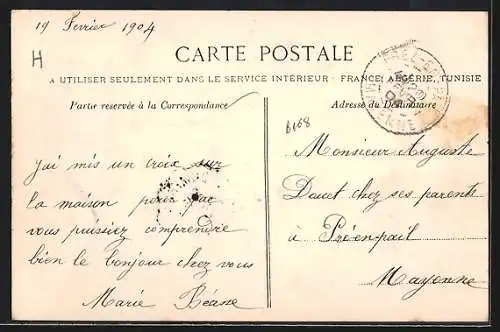 19 Fevrier 1904
H
CARTE POSTALE
A UTILISER SEULEMENT DANS LE SERVICE INTÉRIEUR - FRANCE, ALGÉRIE, TUNISIE
Partie reservée à la Correspondance
Adresse du Destinataire
6168
j'ai mis un croix sur
la maison pour que
vous puissiez comprendre
bien le bonjour chez vous
Marie
Monsieur Auguste
Daut chez ses parents
à Pré-en-pail
Mayenne